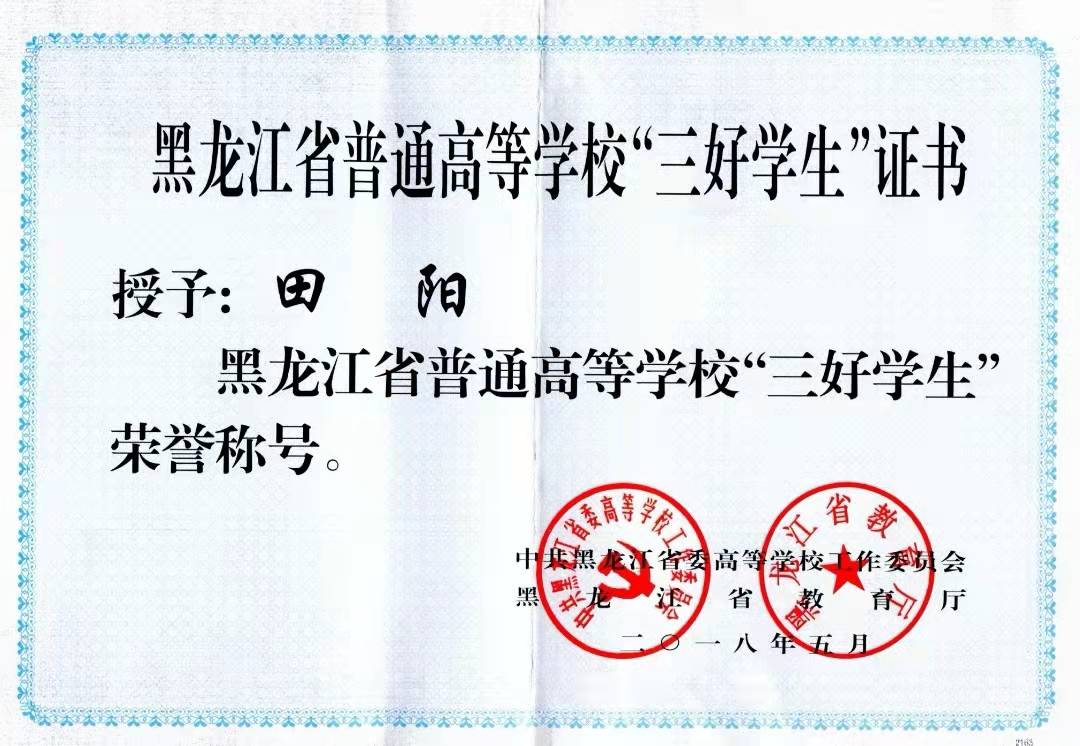 黑龙江省普通高等学校“三好学生”证书
授予：田 阳
黑龙江省普通高等学校“三好学生”
荣誉称号。
中共黑龙江省委高等学校工作委员会
黑龙江省教育厅
二〇一八年五月
中共黑龙江省委高等学校工作委员会
黑龙江省教育厅
2163